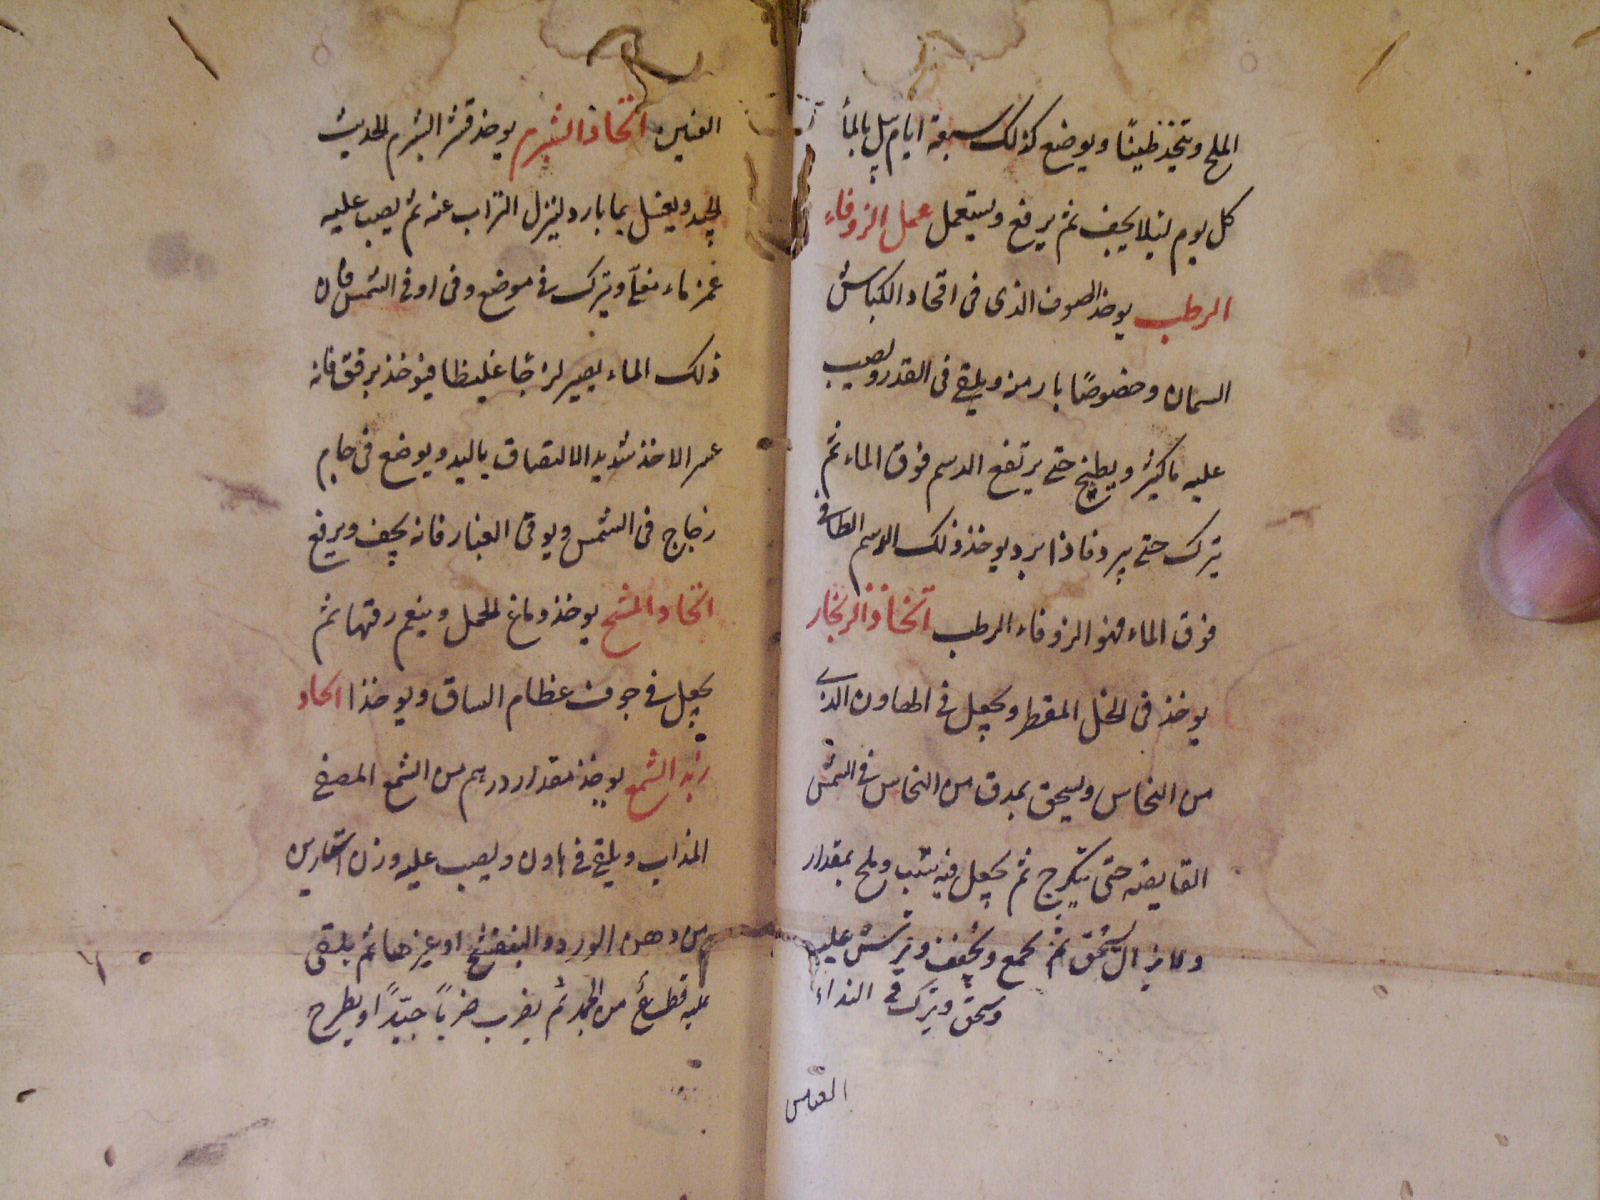 الملح ويتخذ طينًا ويوضع كذلك سبعة ايام يبل بالماء
كل يوم ليلا يجف ثم يرفع ويستعمل عمل الزوفاء
الرطب يوخذ الصوف الذى فى افخاد الكباش
السمان وخصوصًا بارمن ويلقى فى القدر ويصب
عليه ما كثير ويطبخ حتى يرتفع الدسم فوق الماء ثم
يترك حتى يبرد فاذا برد يوخذ ذلك الدسم الطافى
فوق الماء فهو الزوفاء الرطب اتخاذ الزنجار
يوخذ فى الخل المقطر ويجعل فى الهاون الذى
من النحاس ويسحق بمدق من النحاس فى الشمس
القايضه حتى يتكرج ثم يجعل فيه شب وملح بمقدار
ولا يزال يسحق ثم يجمع ويجفف ويرش عليه
وسحق ويترك فى النداء
العنين اتخاذ الشبرم يوخذ قشر الشبرم الحديث
الجيد ويغسل بما بارد لينزل التراب عنه ثم يصب عليه
غمره ماء نقيًا ويترك فى موضع دفى او فى الشمس فان
ذلك الماء يصير لزجًا غليظا فيوخذ برفق فانه
عسر الاخذ شديد الالتصاق باليد ويوضع فى جام
زجاج فى الشمس ويوقى الغبار فانه يجف ويرفع
اتخاذ المخ يوخذ دماغ الحمل وينعم دقتها ثم
يجعل فى جوف عظام الساق ويوخذ اتخاد
زبد الشمع يوخذ مقدار درهم من الشمع المصفى
المذاب ويلقى فى هاون ويصب عليه وزن استارين
من دهن الورد والبنفسج او غيرها ثم يلقى
عليه قطاع من الجمد ثم يضرب ضربًا جيّدًا ويطرح